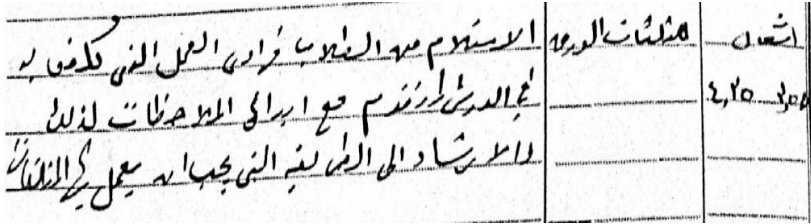 اشغال مثلثات الورق الاستلام من الطلاب فرادى العمل الذى كلفوا به
٣,٥٥ ٤,٢٥ في الدرس مع ابدائى الملاحظات لذلك
والارشاد الى الطريقة التى يجب ان يعمل بها المثلثات